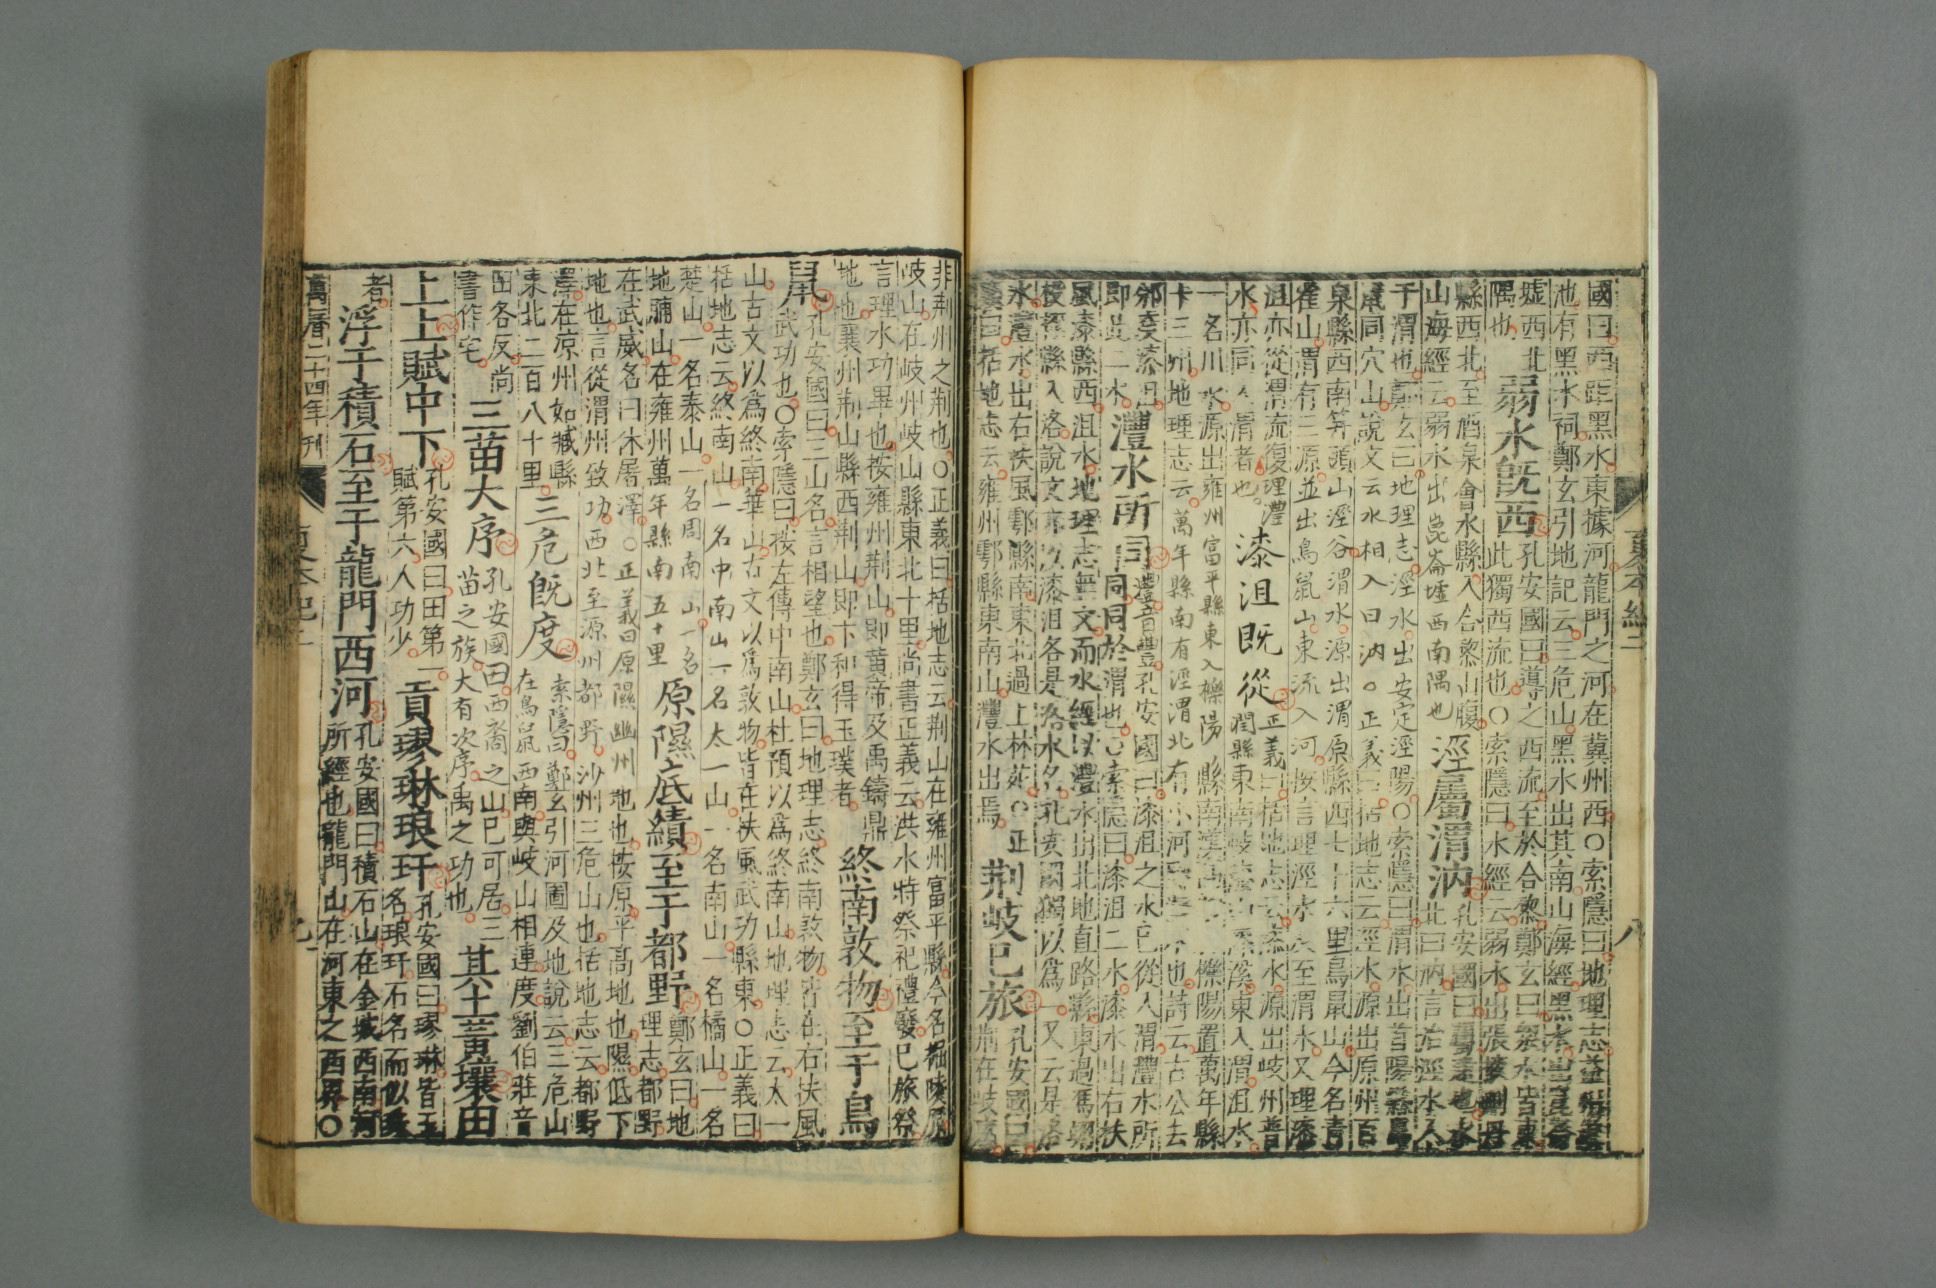 國曰西距黑水東據河龍門之河在冀州西○索隱曰地理志益州滇
池有黑水祠鄭玄引地記云三危山黑水出其南山海經黑水出崑崙
墟西北
隅也
弱水既西
孔安國曰導之西流至於合黎鄭玄曰衆水皆東
此獨西流也○索隱曰水經云弱水出張掖刪丹
縣西北至酒泉會水縣入合黎山腹
山海經云弱水出崑崙墟西南隅也
涇屬渭汭
孔安國曰屬逮也水
北曰汭言治涇水入
于渭也鄭玄曰地理志涇水出安定涇陽○索隱曰渭水出首陽縣鳥
鼠同穴山說文云水相入曰汭○正義曰括地志云涇水源出原州百
泉縣西南笄頭山涇谷渭水源出渭原縣西七十六里鳥鼠山今名青
雀山渭有三源並出鳥鼠山東流入河按言理涇水及至渭水又理漆
沮亦從渭流復理灃
水亦同入渭者也
漆沮既從
正義曰括地志云漆水源出岐州普
潤縣東南岐漆山漆溪東入渭沮水
一名川水源出雍州富平縣東入櫟陽縣南漢高櫟陽置萬年縣
十三州地理志云萬年縣南有涇渭北有小河也詩云古公去
邠度漆沮
即此二水
灃水所同
灃音豐孔安國曰漆沮之水已從入渭灃水所
同同於渭也○索隱曰漆沮二水漆水出右扶
風漆縣西沮水地理志無文而水經以灃水出北地直路縣東過馮翊
祋祤縣入洛說文亦以漆沮各是洛水名孔安國獨以為一又云是洛
水灃水出右扶風鄠縣南東北過上林苑○正
義曰括地志云雍州鄠縣東南山灃水出焉
荊岐已旅
孔安國曰
荊在岐東
夏本紀二
八
非荊州之荊也○正義曰括地志云荊山在雍州富平縣今名掘陵原
岐山在岐州岐山縣東北十里尚書正義云洪水時祭祀禮廢已旅祭
言理水功畢也按雍州荊山即黃帝及禹鑄鼎
地也襄州荊山縣西荊山即卞和得玉璞者
終南敦物至于鳥
鼠
武功也○索隱曰按左傳中南山杜預以爲終南山地理志云太一
孔安國曰三山名言相望也鄭玄曰地理志終南敦物皆在右扶風
山古文以爲終南華山古文以爲敦物皆在扶風武功縣東○正義曰
括地志云終南山一名中南山一名太一山一名南山一名橘山一名
楚山一名泰山一名周南山一名
地腑山在雍州萬年縣南五十里
原隰厎績至于都野
鄭玄曰地
理志都野
在武威名曰休屠澤○正義曰原隰豳州地也按原平高地也隰低下
地也言從渭州致功西北至源州都野沙州三危山也括地志云都野
澤在涼州姑臧縣
東北二百八十里
三危既度
索隱曰鄭玄引河圖及地說云三危山
在鳥鼠西南與岐山相連度劉伯莊音
田各反尚
書作宅
三苗大序
孔安國曰西裔之山已可居三
苗之族大有次序禹之功也
其土黃壤田
上上賦中下
孔安國曰田第一
賦第六人功少
貢璆琳琅玕
孔安國曰璆琳皆玉
名琅玕石名而似珠
者
浮于積石至于龍門西河
孔安國曰積石山在金城西南河
所經也龍門山在河東之西界○
萬曆二十四年刊
夏本紀二
九